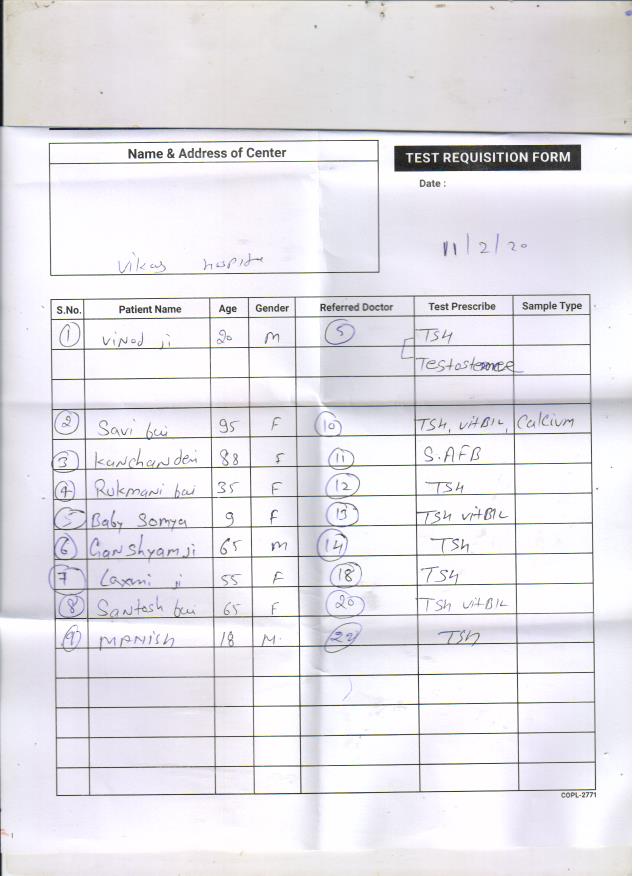 Name & Address of Center
TEST REQUISITION FORM
Date :
11/2/20
Vikas hospita
S.No. Patient Name Age Gender Referred Doctor Test Prescribe Sample Type
1 Vinod ji 20 M 5 TSH
Testosterone
2 Savi bai 95 F 10 TSH, vitB12, Calcium
3 Kanchan devi 88 F 11 S.AFB
4 Rukmani bai 35 F 12 TSH
5 Baby Somya 9 F 13 TSH vitB12
6 Ganshyam ji 65 M 14 TSH
7 Laxmi ji 55 F 18 TSH
8 Santosh bai 65 F 20 TSH vitB12
9 MANISH 18 M. 22 TSH
COPL-2771